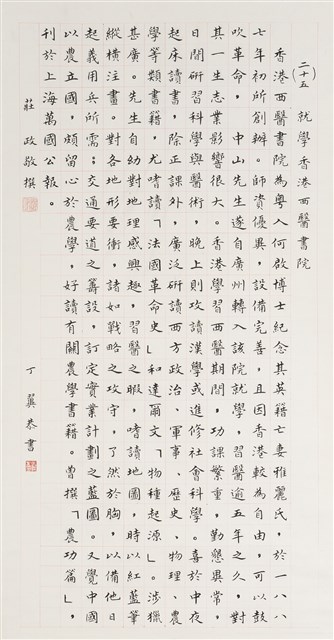 (二十五) 就學香港西醫書院
香港西醫書院為粵人何啟博士紀念其英籍亡妻雅麗氏，於一八八
七年初所創辦。師資優異，設備完善，且因香港較為自由，可以鼓
吹革命，中山先生遂自廣州轉入該院就學，習醫逾五年之久，對
其一生志業影響很大。香港學習西醫期間，功課繁重，勤懇異常，
日間研習科學與醫術，晚上則攻讀漢學或進修社會科學。喜於中夜
起床讀書，除正課外，廣泛研讀西方政治、軍事、歷史、物理、農
學等類書籍，尤嗜讀「法國革命史」和達爾文「物種起源」。涉獵
甚廣。先生自幼對地理感興趣，習醫之暇，嗜讀地圖，時以紅藍筆
縱橫注畫。對各地形要衝，諸如戰略之攻守，了然於胸，以備他日
起義用兵所需；交通要道之籌設，訂定實業計劃之藍圖。又覺中國
以農立國，頗留心於農學，好讀有關農學書籍。曾撰「農功篇」，
刊於上海萬國公報。
莊 政敬撰
丁 書